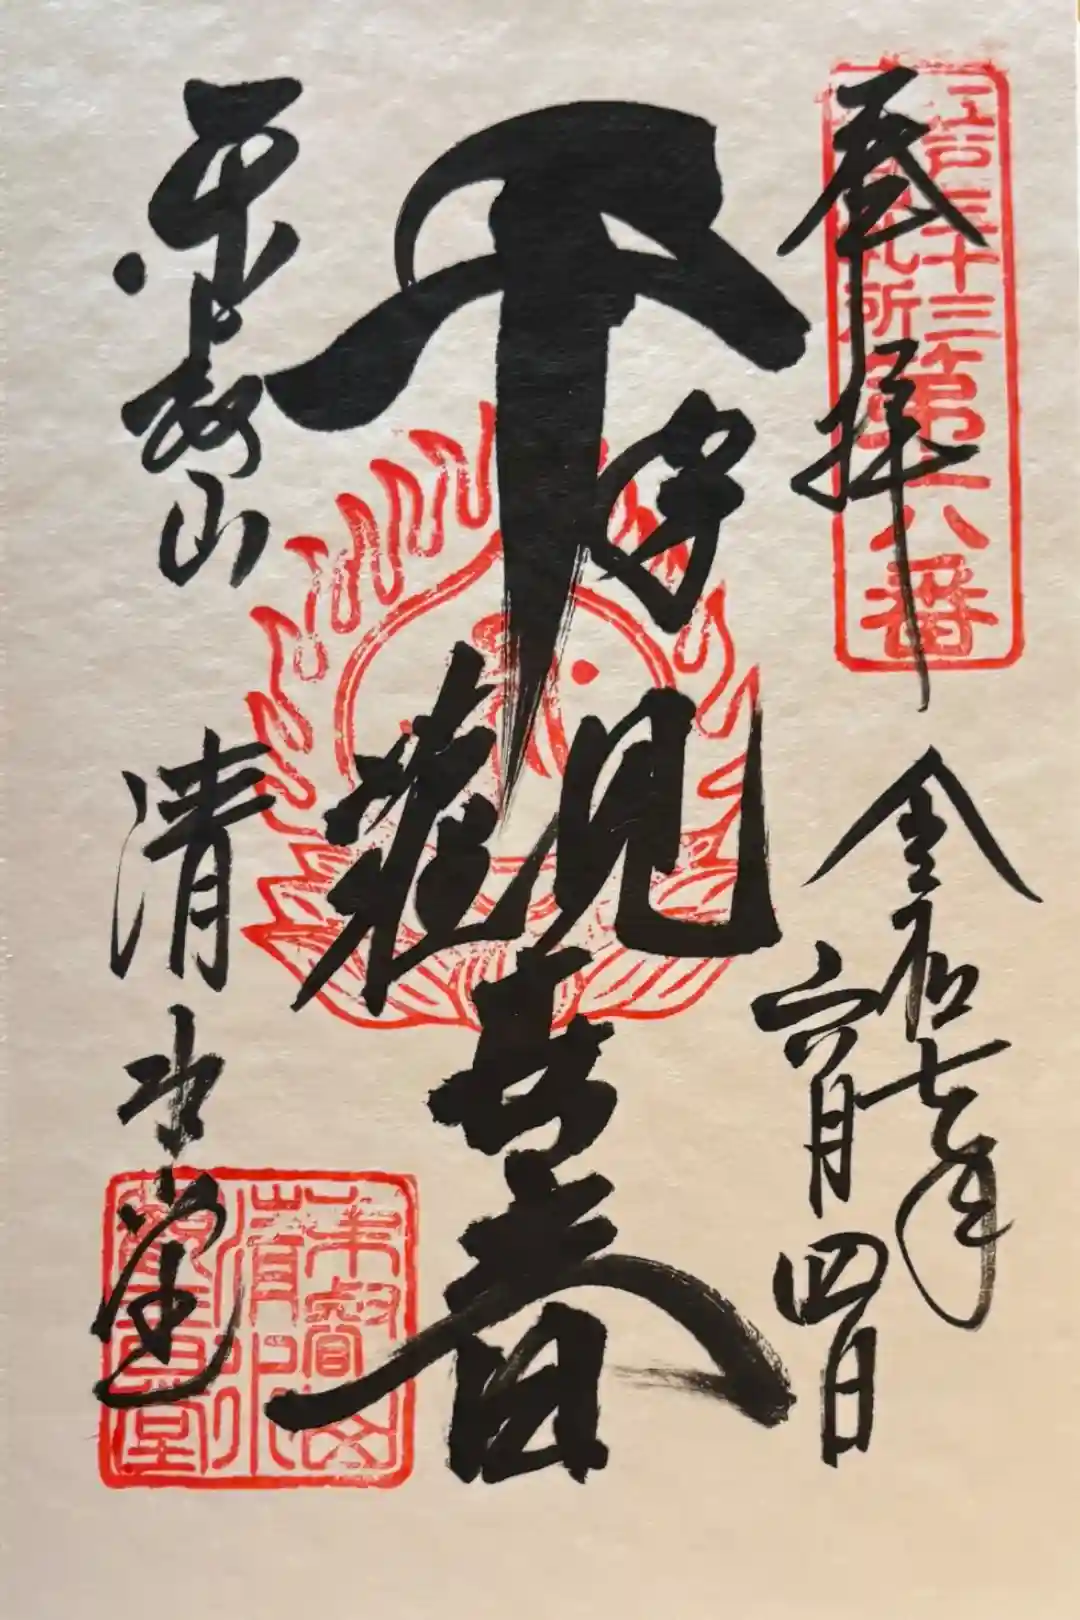 江戸三十三
札所
第六番
奉拝
令和七年
六月四日
千手觀世音
東叡山
清水堂
東叡山
清水
觀音堂